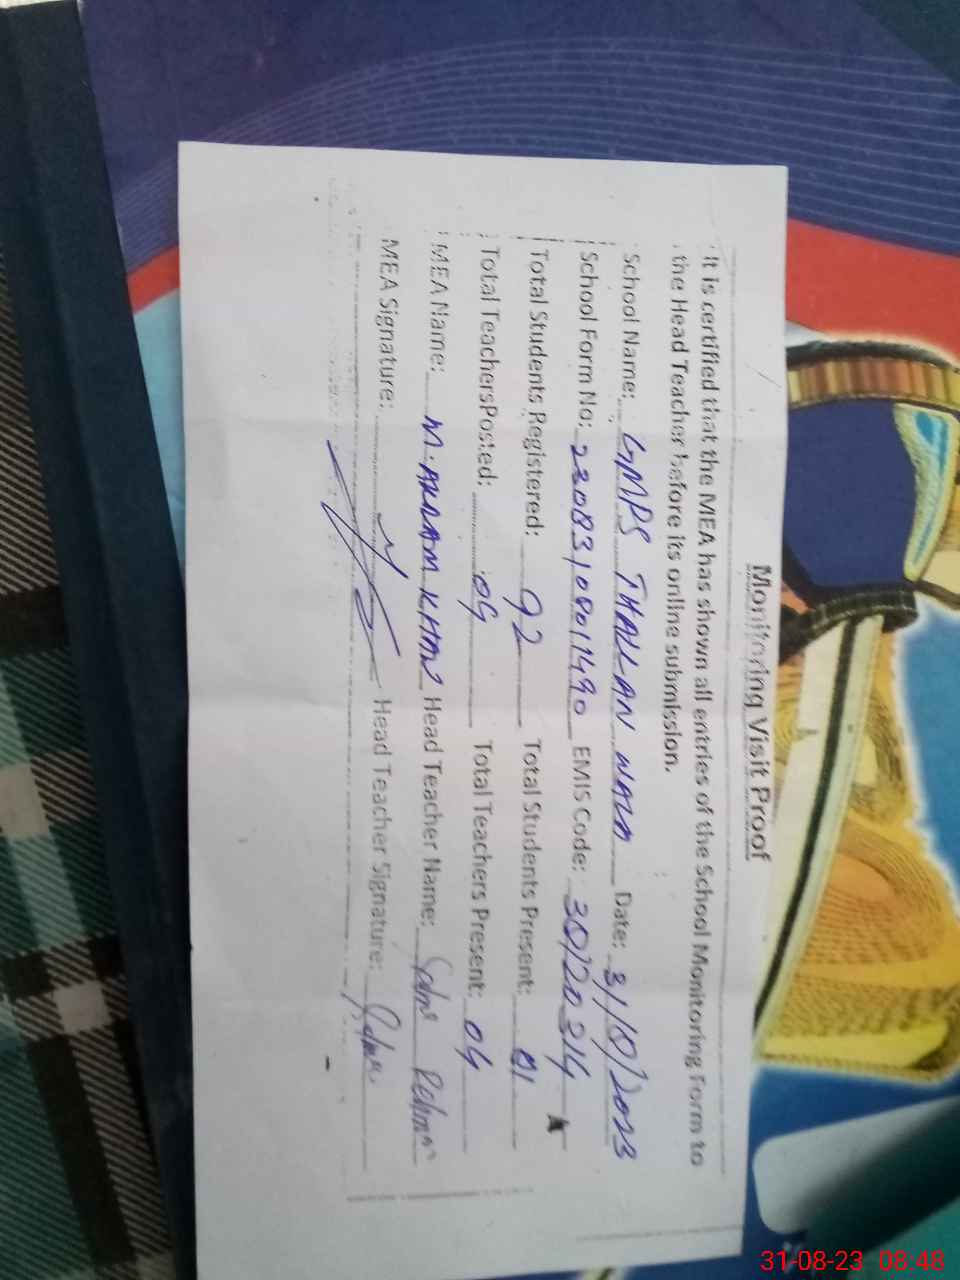 Monitoring Visit Proof
It is certified that the MEA has shown all entries of the School Monitoring Form to
the Head Teacher before its online submission.
School Name: GMPS THALLAN WALA Date:
School Form No: 2308310801490 EMIS Code: 30120314
Total Students Registered: 92 Total Students Present: 01
Total TeachersPosted: 04 Total Teachers Present: 04
MEA Name: M. AKRAM KHAN Head Teacher Name:
MEA Signature: Head Teacher Signature:
31-08-23 08:48